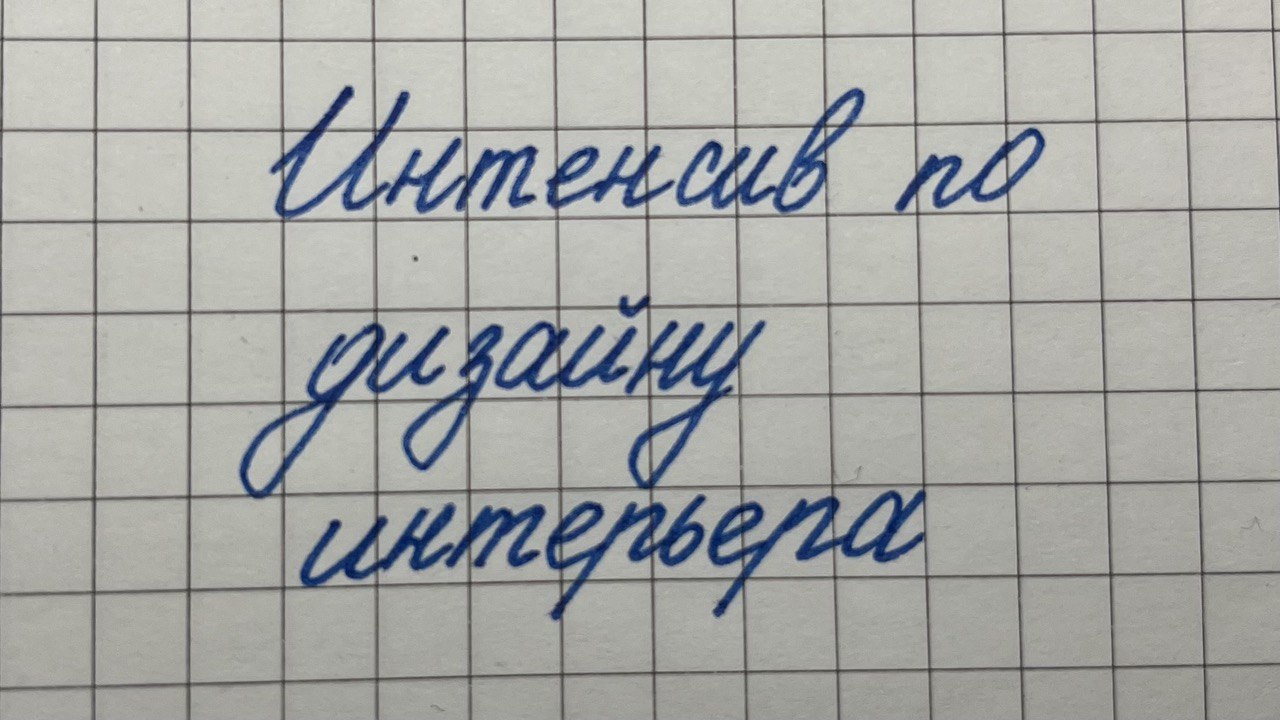 Интенсив по
дизайну
интерьера